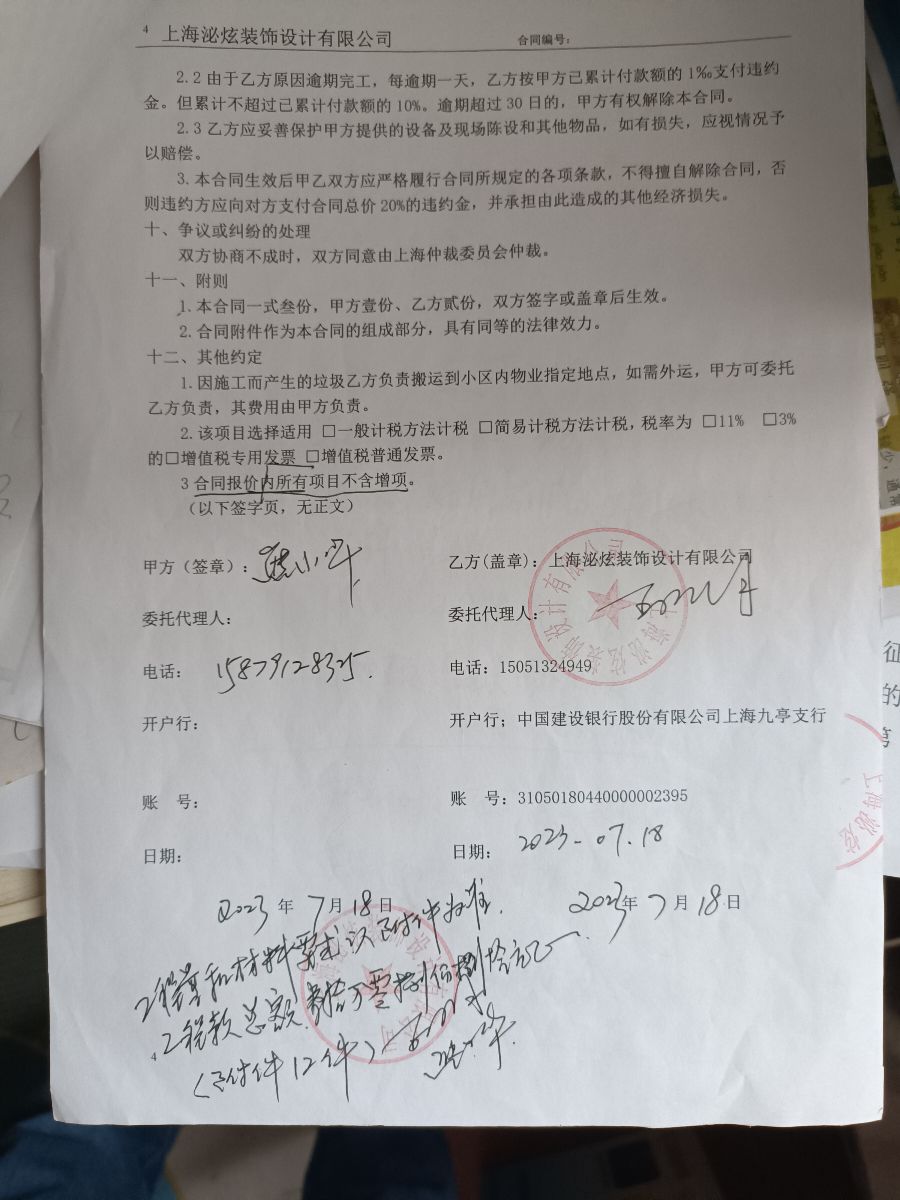 4 上海泌炫装饰设计有限公司 合同编号：
2.2 由于乙方原因逾期完工，每逾期一天，乙方按甲方已累计付款额的 1‰支付违约
金。但累计不超过已累计付款额的 10%。逾期超过 30 日的，甲方有权解除本合同。
2.3 乙方应妥善保护甲方提供的设备及现场陈设和其他物品，如有损失，应视情况予
以赔偿。
3. 本合同生效后甲乙双方应严格履行合同所规定的各项条款，不得擅自解除合同，否
则违约方应向对方支付合同总价 20%的违约金，并承担由此造成的其他经济损失。
十、争议或纠纷的处理
双方协商不成时，双方同意由上海仲裁委员会仲裁。
十一、附则
1. 本合同一式叁份，甲方壹份、乙方贰份，双方签字或盖章后生效。
2. 合同附件作为本合同的组成部分，具有同等的法律效力。
十二、其他约定
1. 因施工而产生的垃圾乙方负责搬运到小区内物业指定地点，如需外运，甲方可委托
乙方负责，其费用由甲方负责。
2. 该项目选择适用 □一般计税方法计税 □简易计税方法计税，税率为 □11% □3%
的□增值税专用发票 □增值税普通发票。
3 合同报价内所有项目不含增项。
（以下签字页，无正文）
甲方（签章）： 乙方(盖章)：上海泌炫装饰设计有限公司
委托代理人： 委托代理人：
电话： 15879128325. 电话：15051324949
开户行： 开户行；中国建设银行股份有限公司上海九亭支行
账 号： 账 号：31050180440000002395
日期： 日期： 2023-07.18
2023 年 7 月 18 日 2023 年 7 月 18 日
材料要求以附件为准.
总额
4 附件12件）